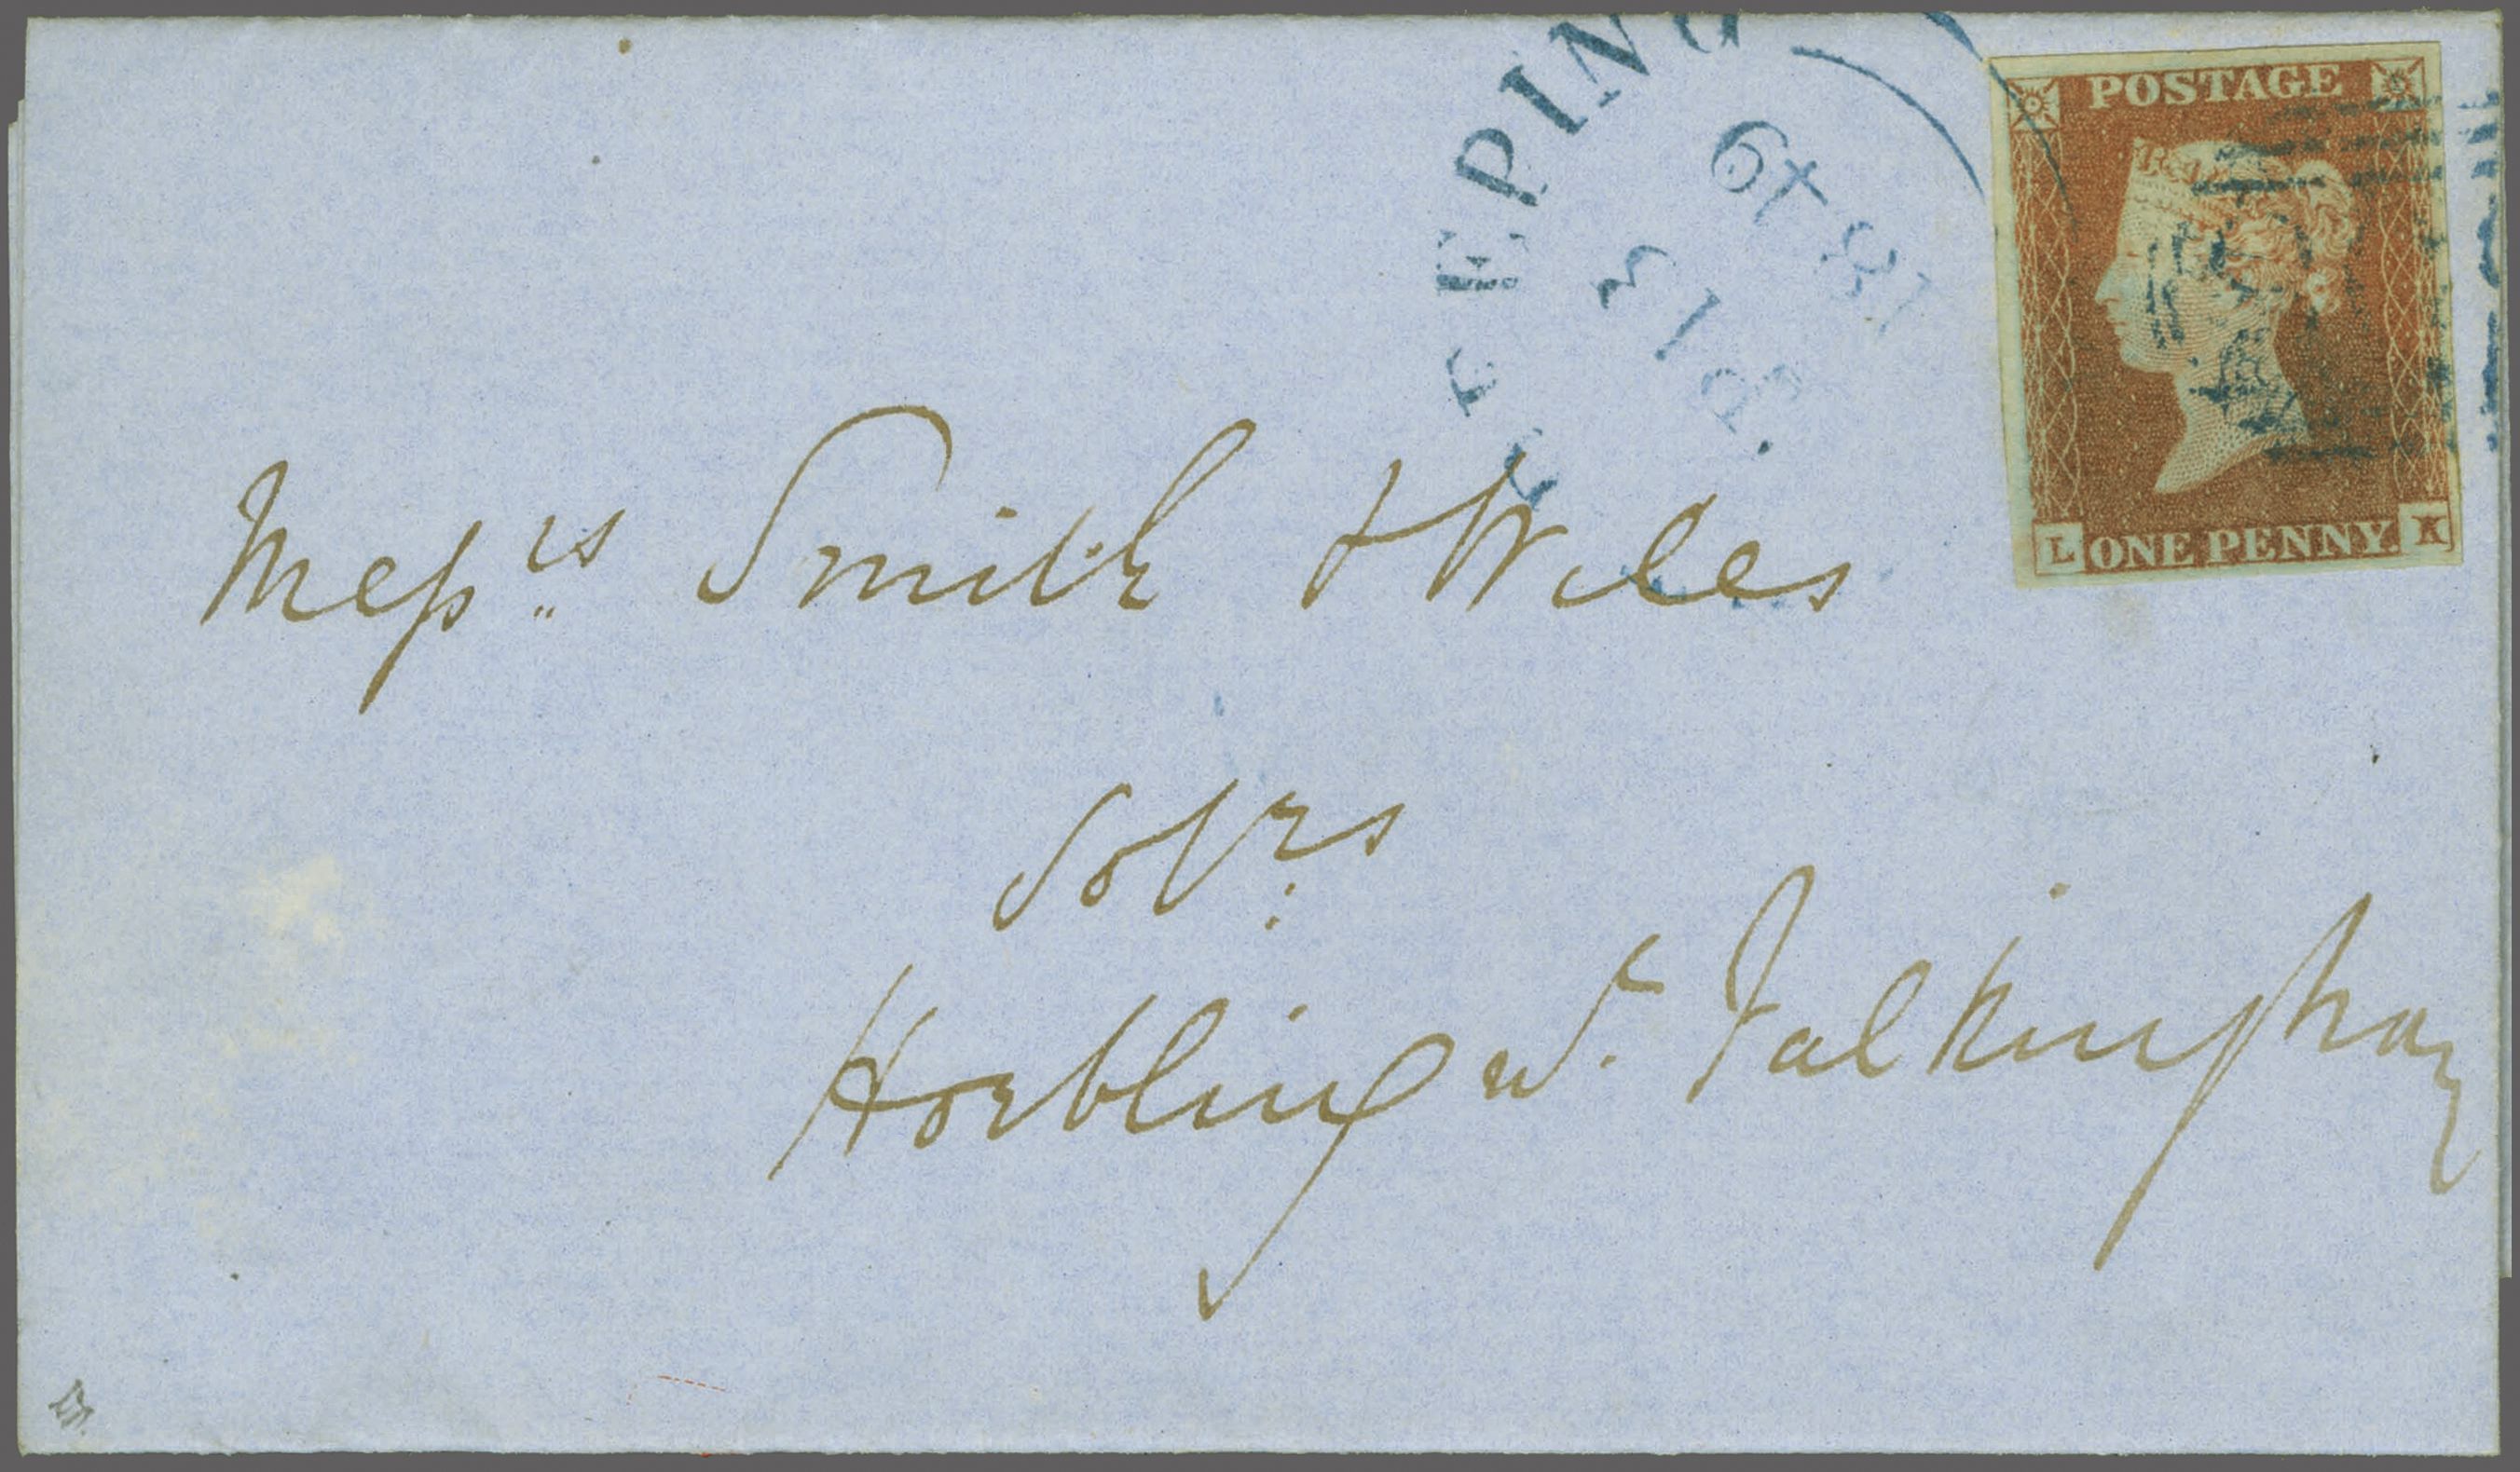 EEPING
AP 13
1849
POSTAGE
L ONE PENNY. K
Messrs Smith & Wiles
Solrs
Horbling nr Falkingham